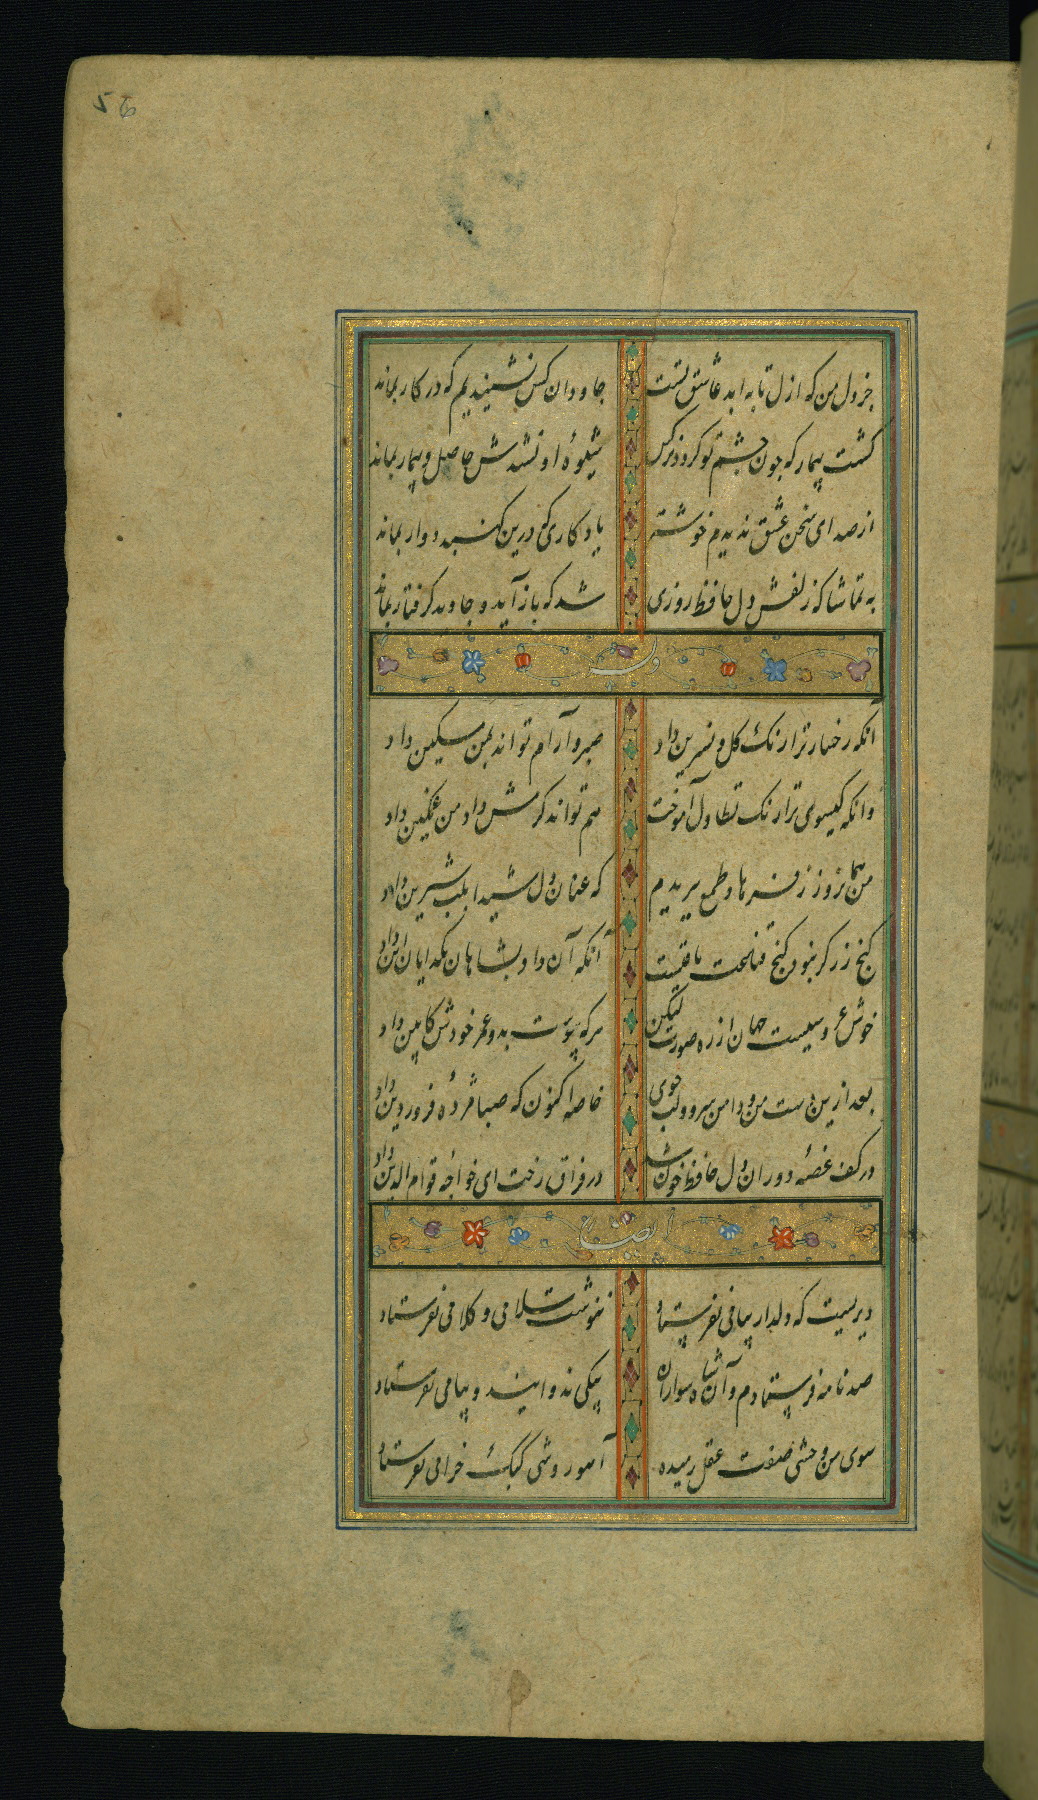 56
جز دل من که ازل تا به ابد عاشق تست جاودان کس نشنیدیم که در کار بماند
کشت بیمار که چون چشم تو کردد نرکس شیوه او نشدش حاصل و بیمار بماند
از صدای سخن عشق ندیدم خوشتر یادکاری که درین کنبد دوار بماند
به تماشاکه زلفش دل حافظ روزی شد که بازآید و جاوید کرفتار بماند
وله
آنکه رخسار ترا رنک کل و نسرین داد صبر و آرام تواند بمن مسکین داد
وانکه کیسوی ترا رنک تطاول آموخت هم تواند کرمش داد من غمکین داد
من همانروز ز فرهاد طمع ببریدم که عنان دل شیدا بلب شیرین داد
کنج زر کر نبود کنج قناعت باقیست آنکه آن داد بشاهان بکدایان این داد
خوش عروسیست جهان از ره صورت لیکن هرکه پیوست بدو عمر خودش کابین داد
بعد ازین دست من و دامن سرو و لب جوی خاصه اکنون که صبا مژدهٔ فروردین داد
در کف غصهٔ دوران دل حافظ خون شد در فراق رخت ای خواجه قوام الدین داد
ایضا
دیریست که دلدار پیامی نفرستاد ننوشت سلامی و کلامی نفرستاد
صد نامه فرستادم و آن شاه سواران پیکی ندوانید و پیامی نفرستاد
سوی من وحشی صفت عقل رمیده آهو روشی کبک خرامی نفرستاد